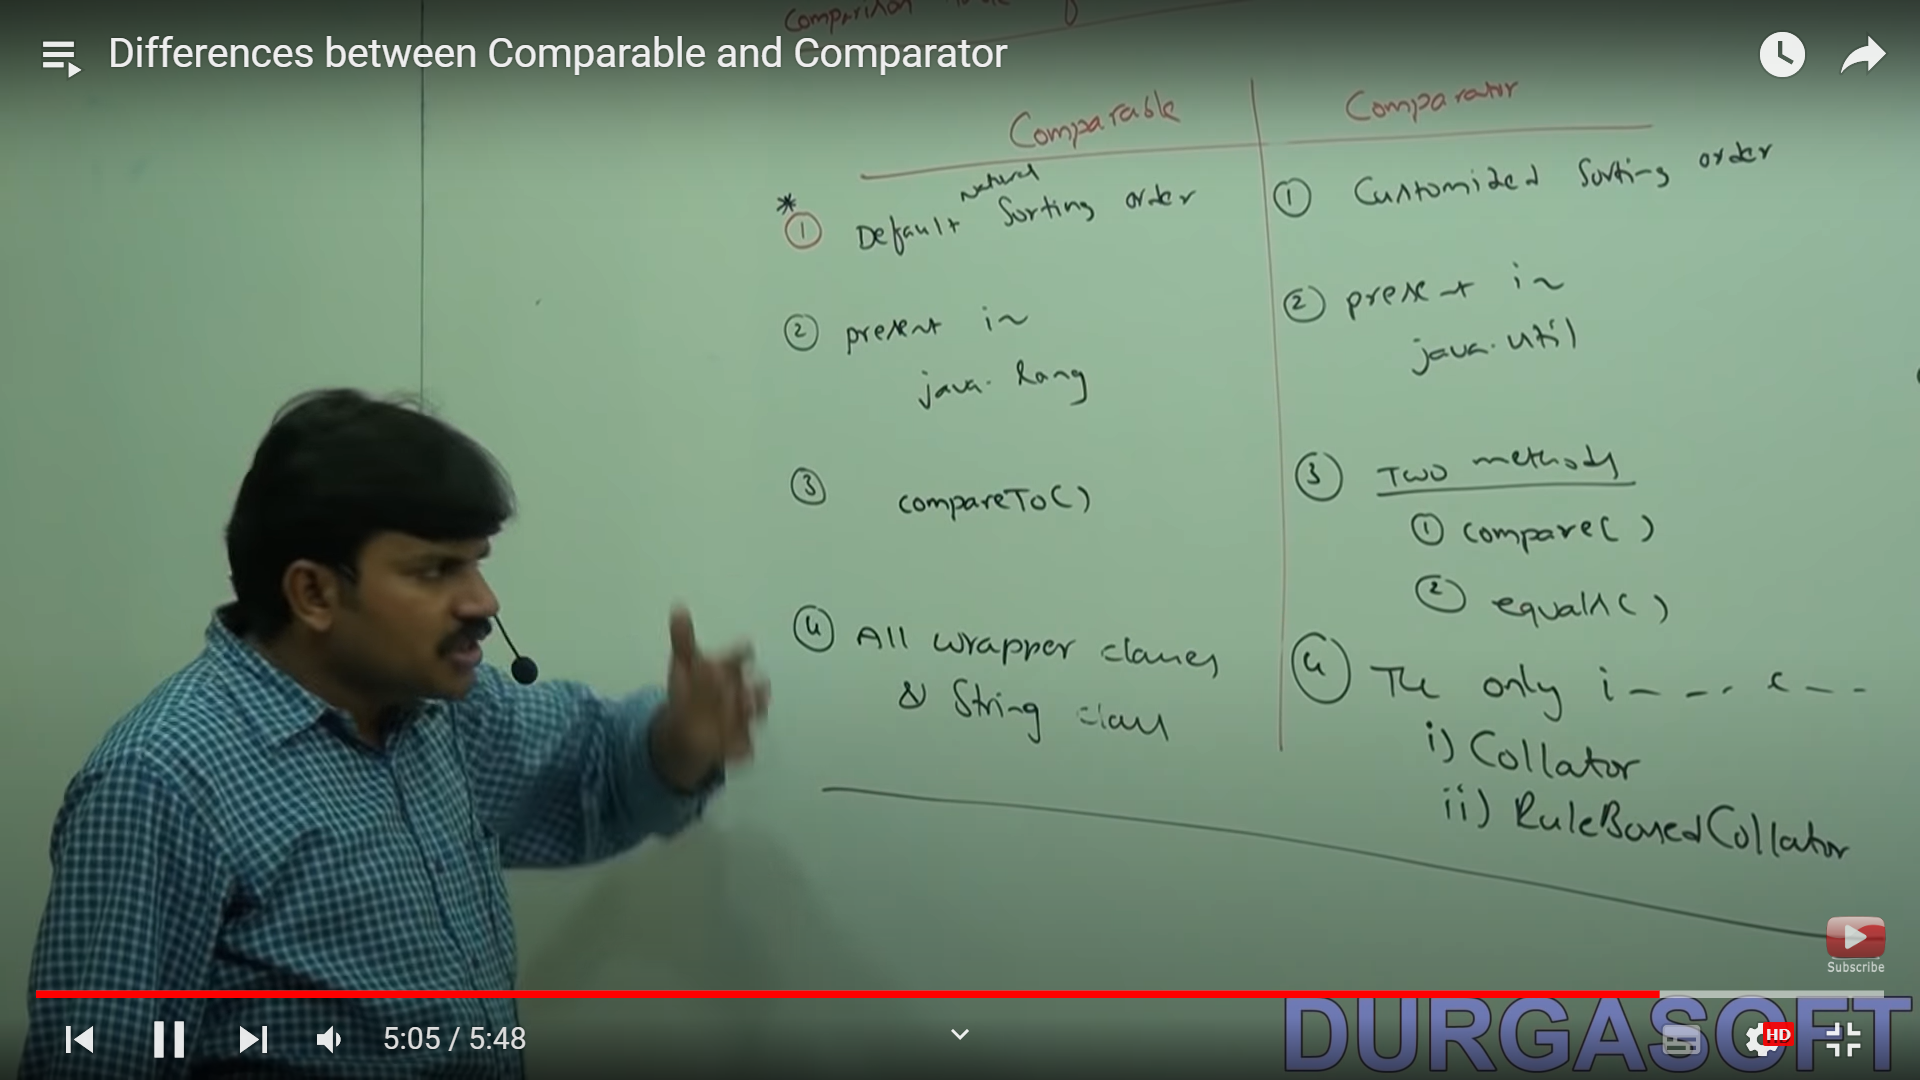 Differences between Comparable and Comparator
Comparison
Comparable
Comparator
*
① Default Natural Sorting order
② present in
java.lang
③ compareTo()
④ All wrapper classes
& String class
① Customized Sorting order
② present in
java.util
③ Two methods
① compare( )
② equals( )
④ The only i - - - c - - -
i) Collator
ii) RuleBasedCollator
Subscribe
5:05 / 5:48
HD
DURGASOFT